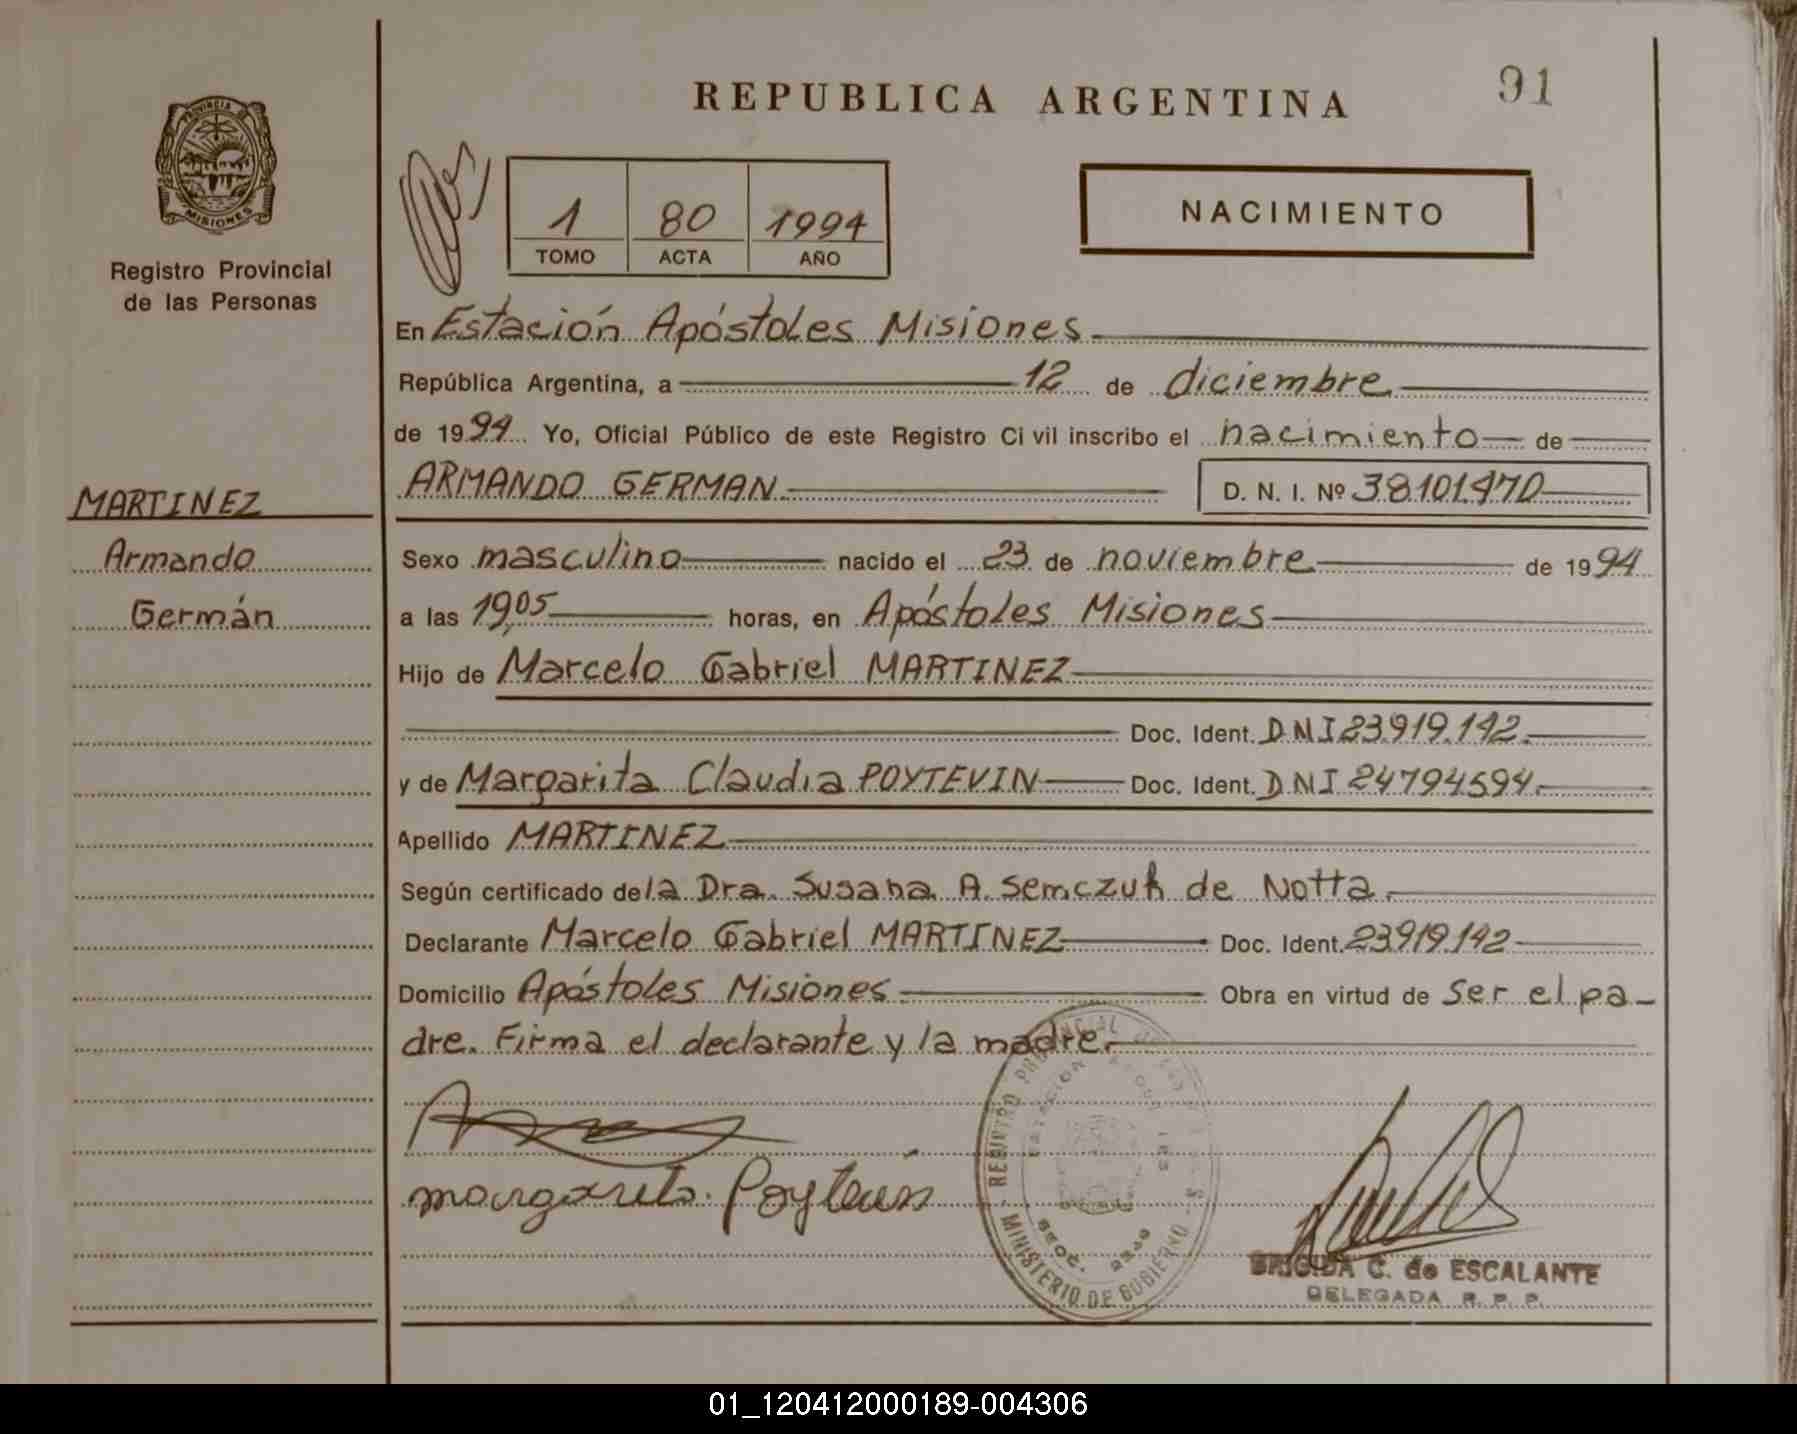 REPUBLICA ARGENTINA
91
PROVINCIA DE
MISIONES
Registro Provincial
de las Personas
1 80 1994
TOMO ACTA AÑO
NACIMIENTO
En Estación Apóstoles Misiones
República Argentina, a 12 de diciembre
de 1994 Yo, Oficial Público de este Registro Civil inscribo el nacimiento de
ARMANDO GERMAN D. N. I. Nº 38.101.470
MARTINEZ
Armando
Germán
Sexo masculino nacido el 23 de noviembre de 1994
a las 19,05 horas, en Apóstoles Misiones
Hijo de Marcelo Gabriel MARTINEZ
Doc. Ident. DNI 23.919.142.
y de Margarita Claudia POYTEVIN Doc. Ident. DNI 24794594.
Apellido MARTINEZ
Según certificado de la Dra. Susana A. Semczuk de Notta.
Declarante Marcelo Gabriel MARTINEZ Doc. Ident. 23.919.142
Domicilio Apóstoles Misiones Obra en virtud de ser el pa-
dre. Firma el declarante y la madre.
margarita Poytevin
REGISTRO PROVINCIAL DE LAS
MINISTERIO DE GOBIERNO
BRIGIDA C. de ESCALANTE
DELEGADA R. P. P.
01_120412000189-004306